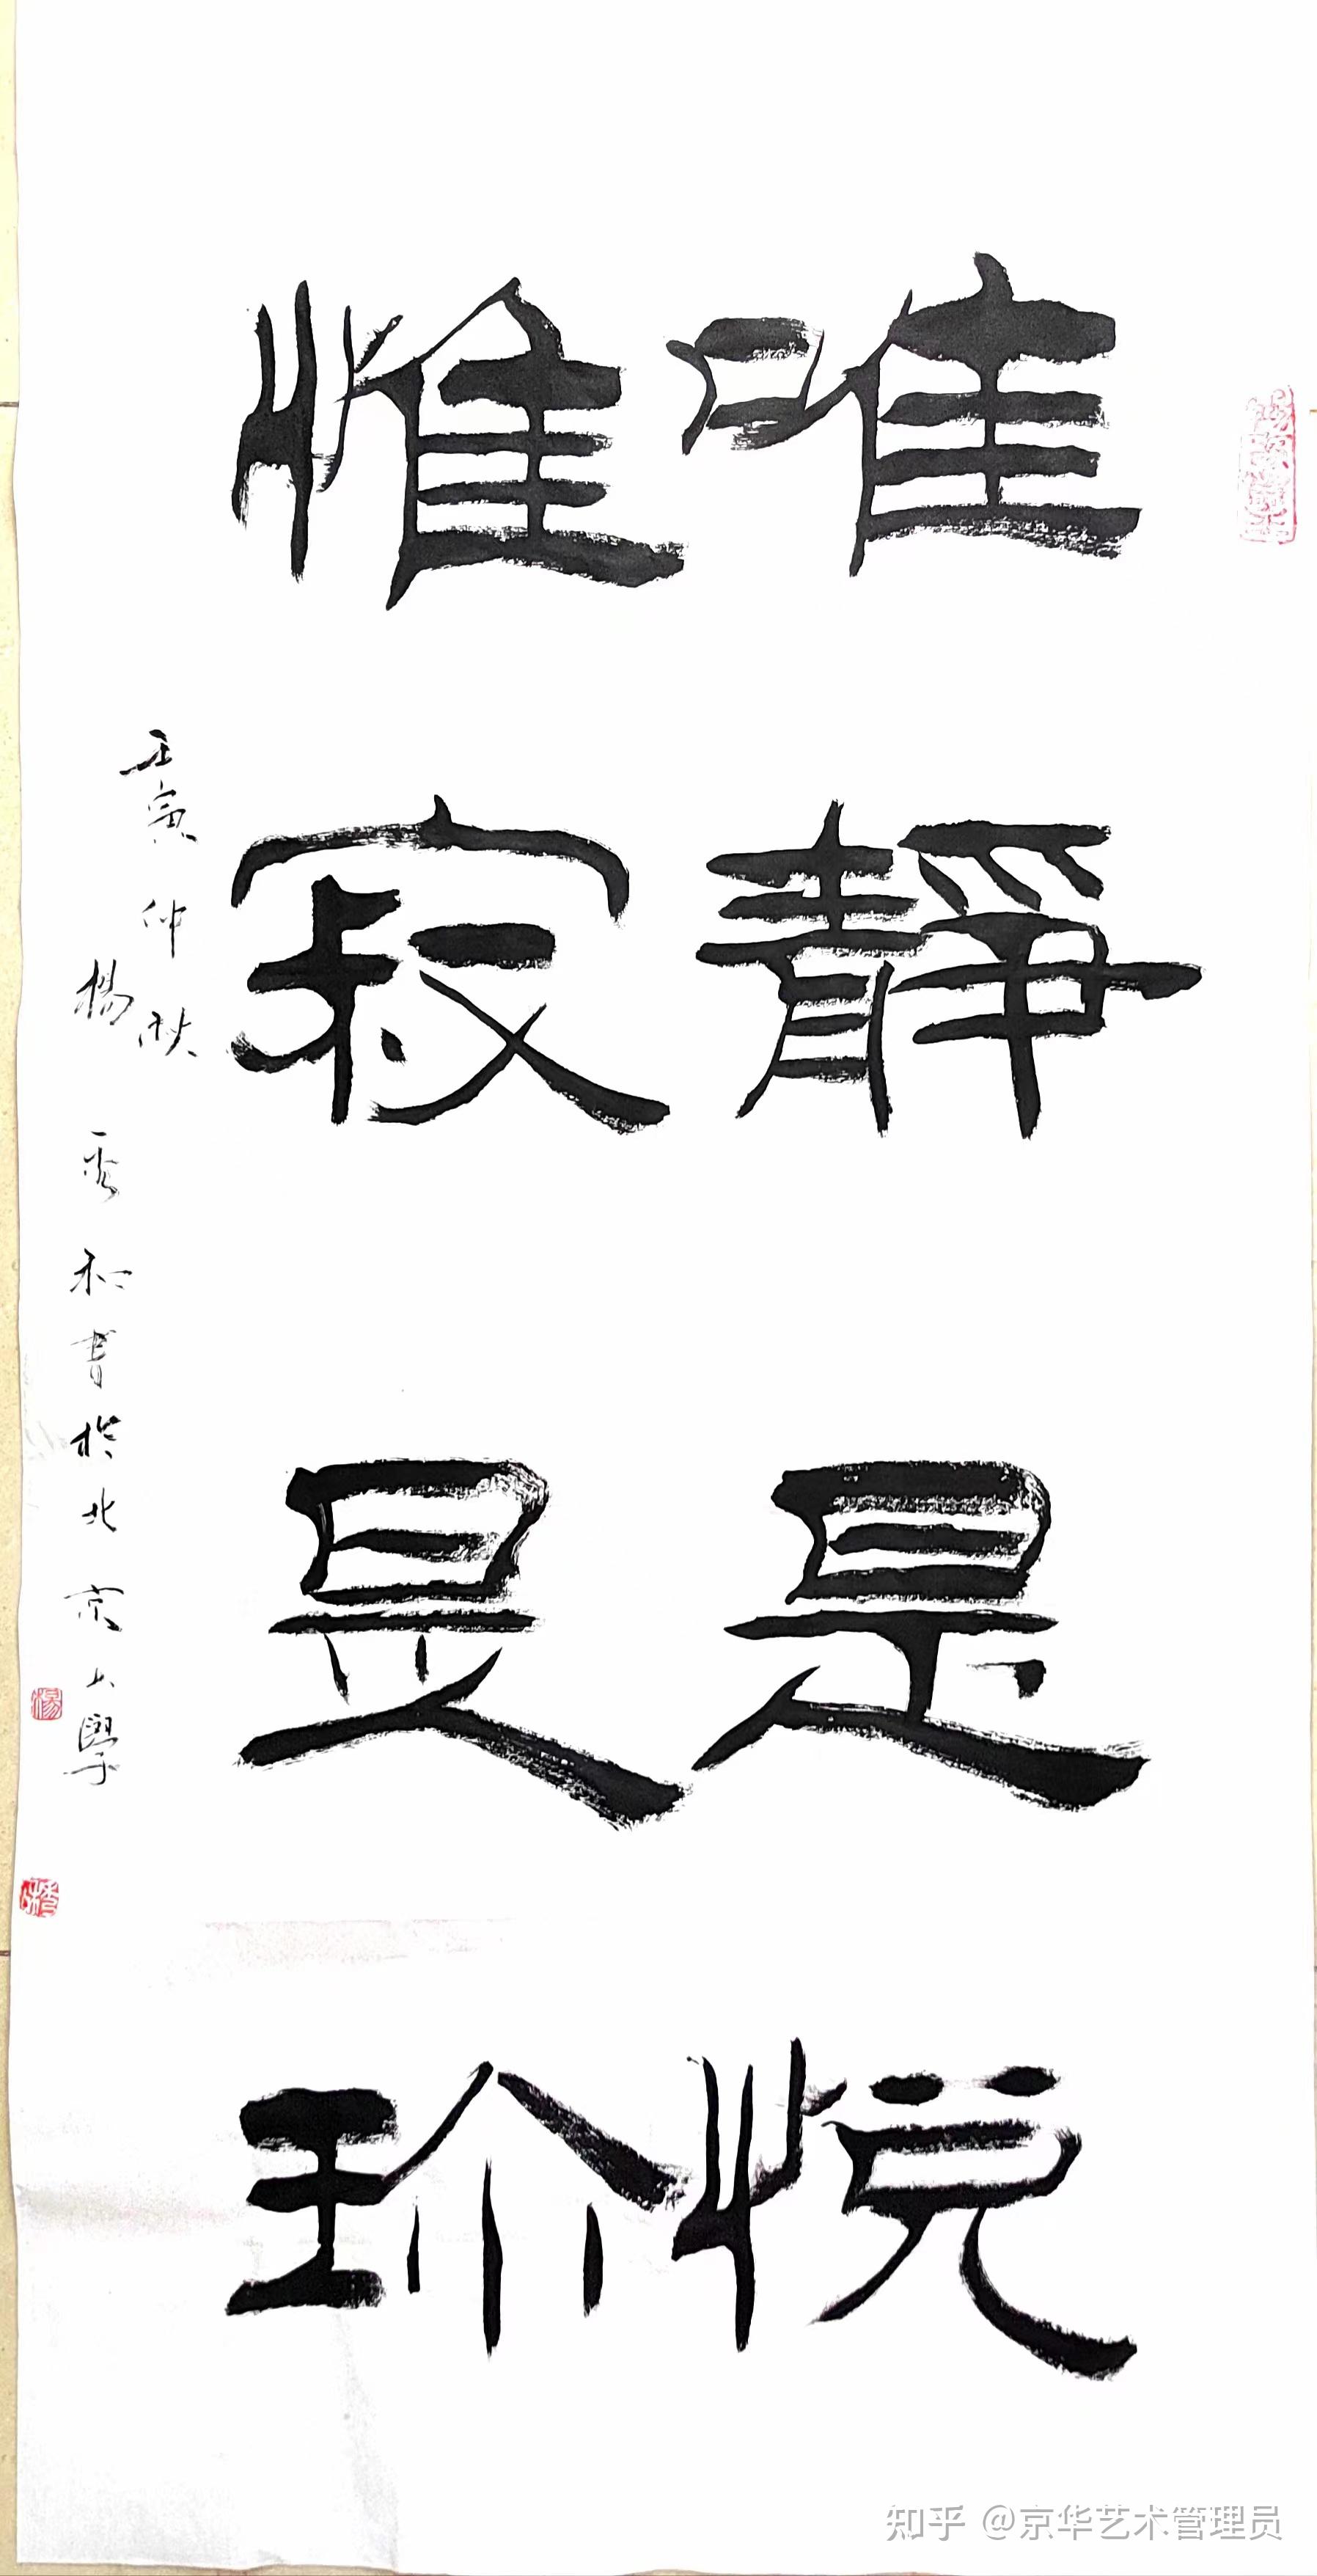 唯靜是悦
惟寂是珎
壬寅仲秋
楊秀和書於北京大學
楊
知乎 @京华艺术管理员